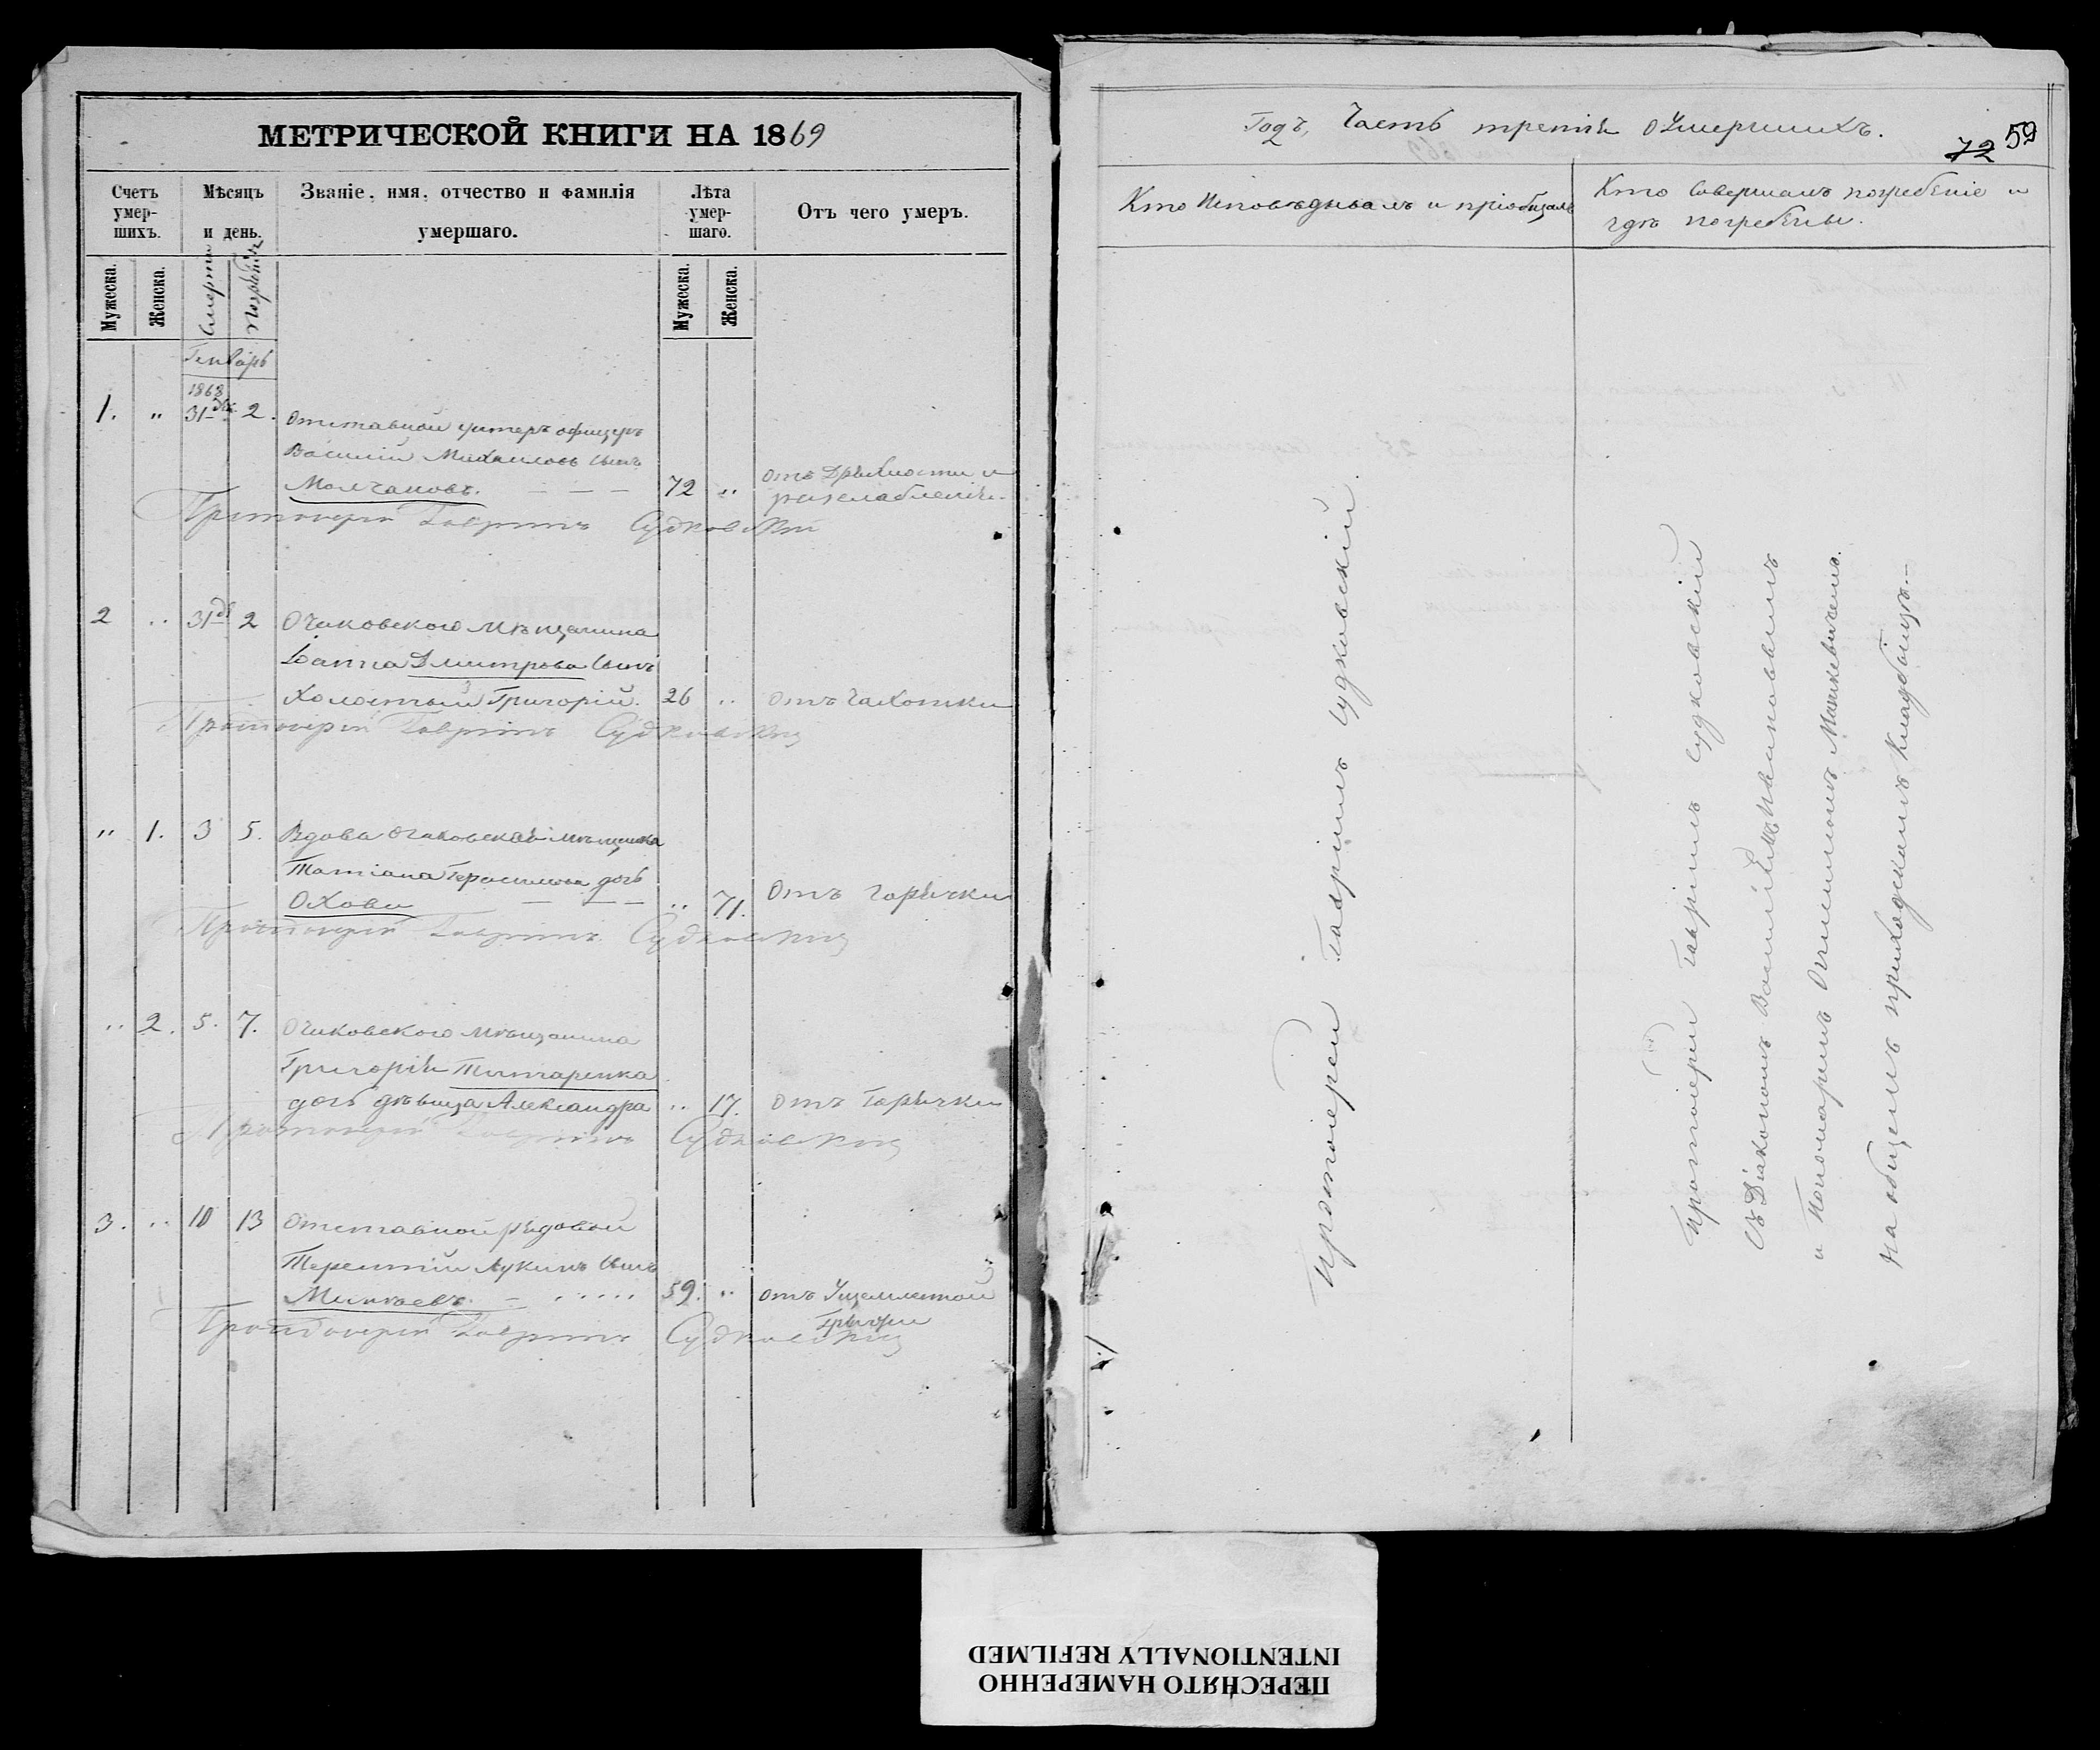 МЕТРИЧЕСКОЙ КНИГИ НА 1869
Счетъ умер-шихъ.
Мѣсяцъ и день.
Званіе, имя, отчество и фамилія умершаго.
Лѣта умер-шаго.
Отъ чего умеръ.
Мужеска.
Женска.
Смерти
Погребенія
Мужеска.
Женска.
Генварь
1868
1. " 31 дек. 2.
Отставной унтеръ офицеръ
Василій Михаиловъ сынъ
Молчановъ. 72 "
отъ Дряхлости и
разслабленія.
Протоиерей Гавріилъ Судковскій
2 " 31 2 Очаковскаго мѣщанина
Іоанна Дмитрова сынъ
холостый Григорій. 26 " отъ Чахотки
Протоиерей Гавріилъ Судковскій
" 1. 3 5. Вдова Очаковская мѣщанка
Татіана Герасимова дочь
Охова " 71. Отъ горячки
Протоиерей Гавріилъ Судковскій
" 2. 5. 7. Очаковскаго мѣщанина
Григорія Титаренка
дочь дѣвица Александра " 17. отъ Горячки
Протоиерей Гавріилъ Судковскій
3. " 10 13 Отставной рядовой
Терентій Лукинъ сынъ
59. " отъ Ущемленной
Грыжи
Протоиерей Гавріилъ Судковскій
Годъ, Часть третія о Умершихъ.
72 59
Кто Исповѣдывалъ и пріобщалъ
Кто Совершалъ погребеніе и
гдѣ погребены.
Протоиерей Гавріилъ Судковскій.
Протоиерей Гавріилъ Судковскій
Съ Діакономъ Василіемъ
и Пономаремъ Мошкевичемъ.
на общемъ приходскомъ Кладбищѣ.
ПЕРЕСНЯТО НАМЕРЕННО
INTENTIONALLY REFILMED